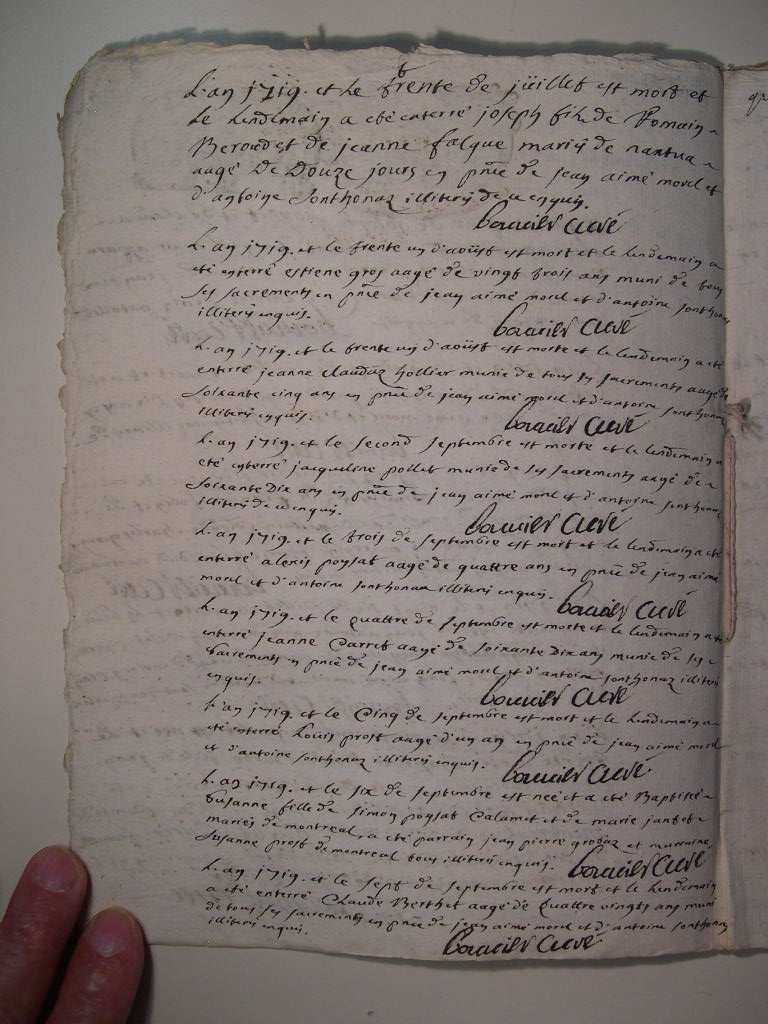 L'an 1719. et le trente de jüillet est mort et
le lendemain a eté enterré joseph fils de Romain
Beroud et de jeanne falque mariés de nantua
aagé de Douze jours en pñce de jean aimé morel et
d'antoine sonthonax illiterés de ce enquis.
Courcier Curé
L'an 1719. et le trente un d'aoüst est mort et le lendemain a
eté enterré estiene gros aagé de vingt trois ans muni de tous
ses sacrements en pñce de jean aimé morel et d'antoine sonthonax
illiterés enquis.
Curé
L'an 1719. et le trente un d'aoüst est morte et le lendemain a eté
enterré jeanne claudaz hollier munie de tous ses sacrements aagé de
soixante cinq ans en pñce de jean aimé morel et d'antoine sonthonax
illiterés enquis.
Curé
L'an 1719. et le second septembre est morte et le lendemain a
eté enterré jacqueline pollet munie de ses sacrements aagé de
soixante Dix ans en pñce de jean aimé morel et d'antoine sonthonax
illiterés de ce enquis.
Curé
L'an 1719. et le trois de septembre est mort et le lendemain a eté
enterré alexis poysat aagé de quattre ans en pñce de jean aimé
morel et d'antoine sonthonax illiterés enquis.
Curé
L'an 1719. et le quattre de septembre est morte et le lendemain a eté
enterré jeanne Carret aagé de soixante Dix ans munie de ses
sacrements en pñce de jean aimé morel et d'antoine sonthonax illiterés
enquis.
Curé
L'an 1719. et le Cinq de septembre est mort et le lendemain a
eté enterré Louis prost aagé d'un an en pñce de jean aimé morel
et d'antoine sonthonax illiterés enquis.
Curé
L'an 1719. et le six de septembre est neé et a eté Baptiseé
susanne fille de simon poysat Calamet et de marie jantet
mariés de montreal, a eté parrain jean pierre grobaz et marraine
susanne prost de montreal tous illiterés enquis.
Curé
L'an 1719. et le sept de septembre est mort et le lendemain
a eté enterré Claude Berthet aagé de quattre vingts ans muni
de tous ses sacrements en pñce de jean aimé morel et d'antoine sonthonax
illiterés enquis.
Curé